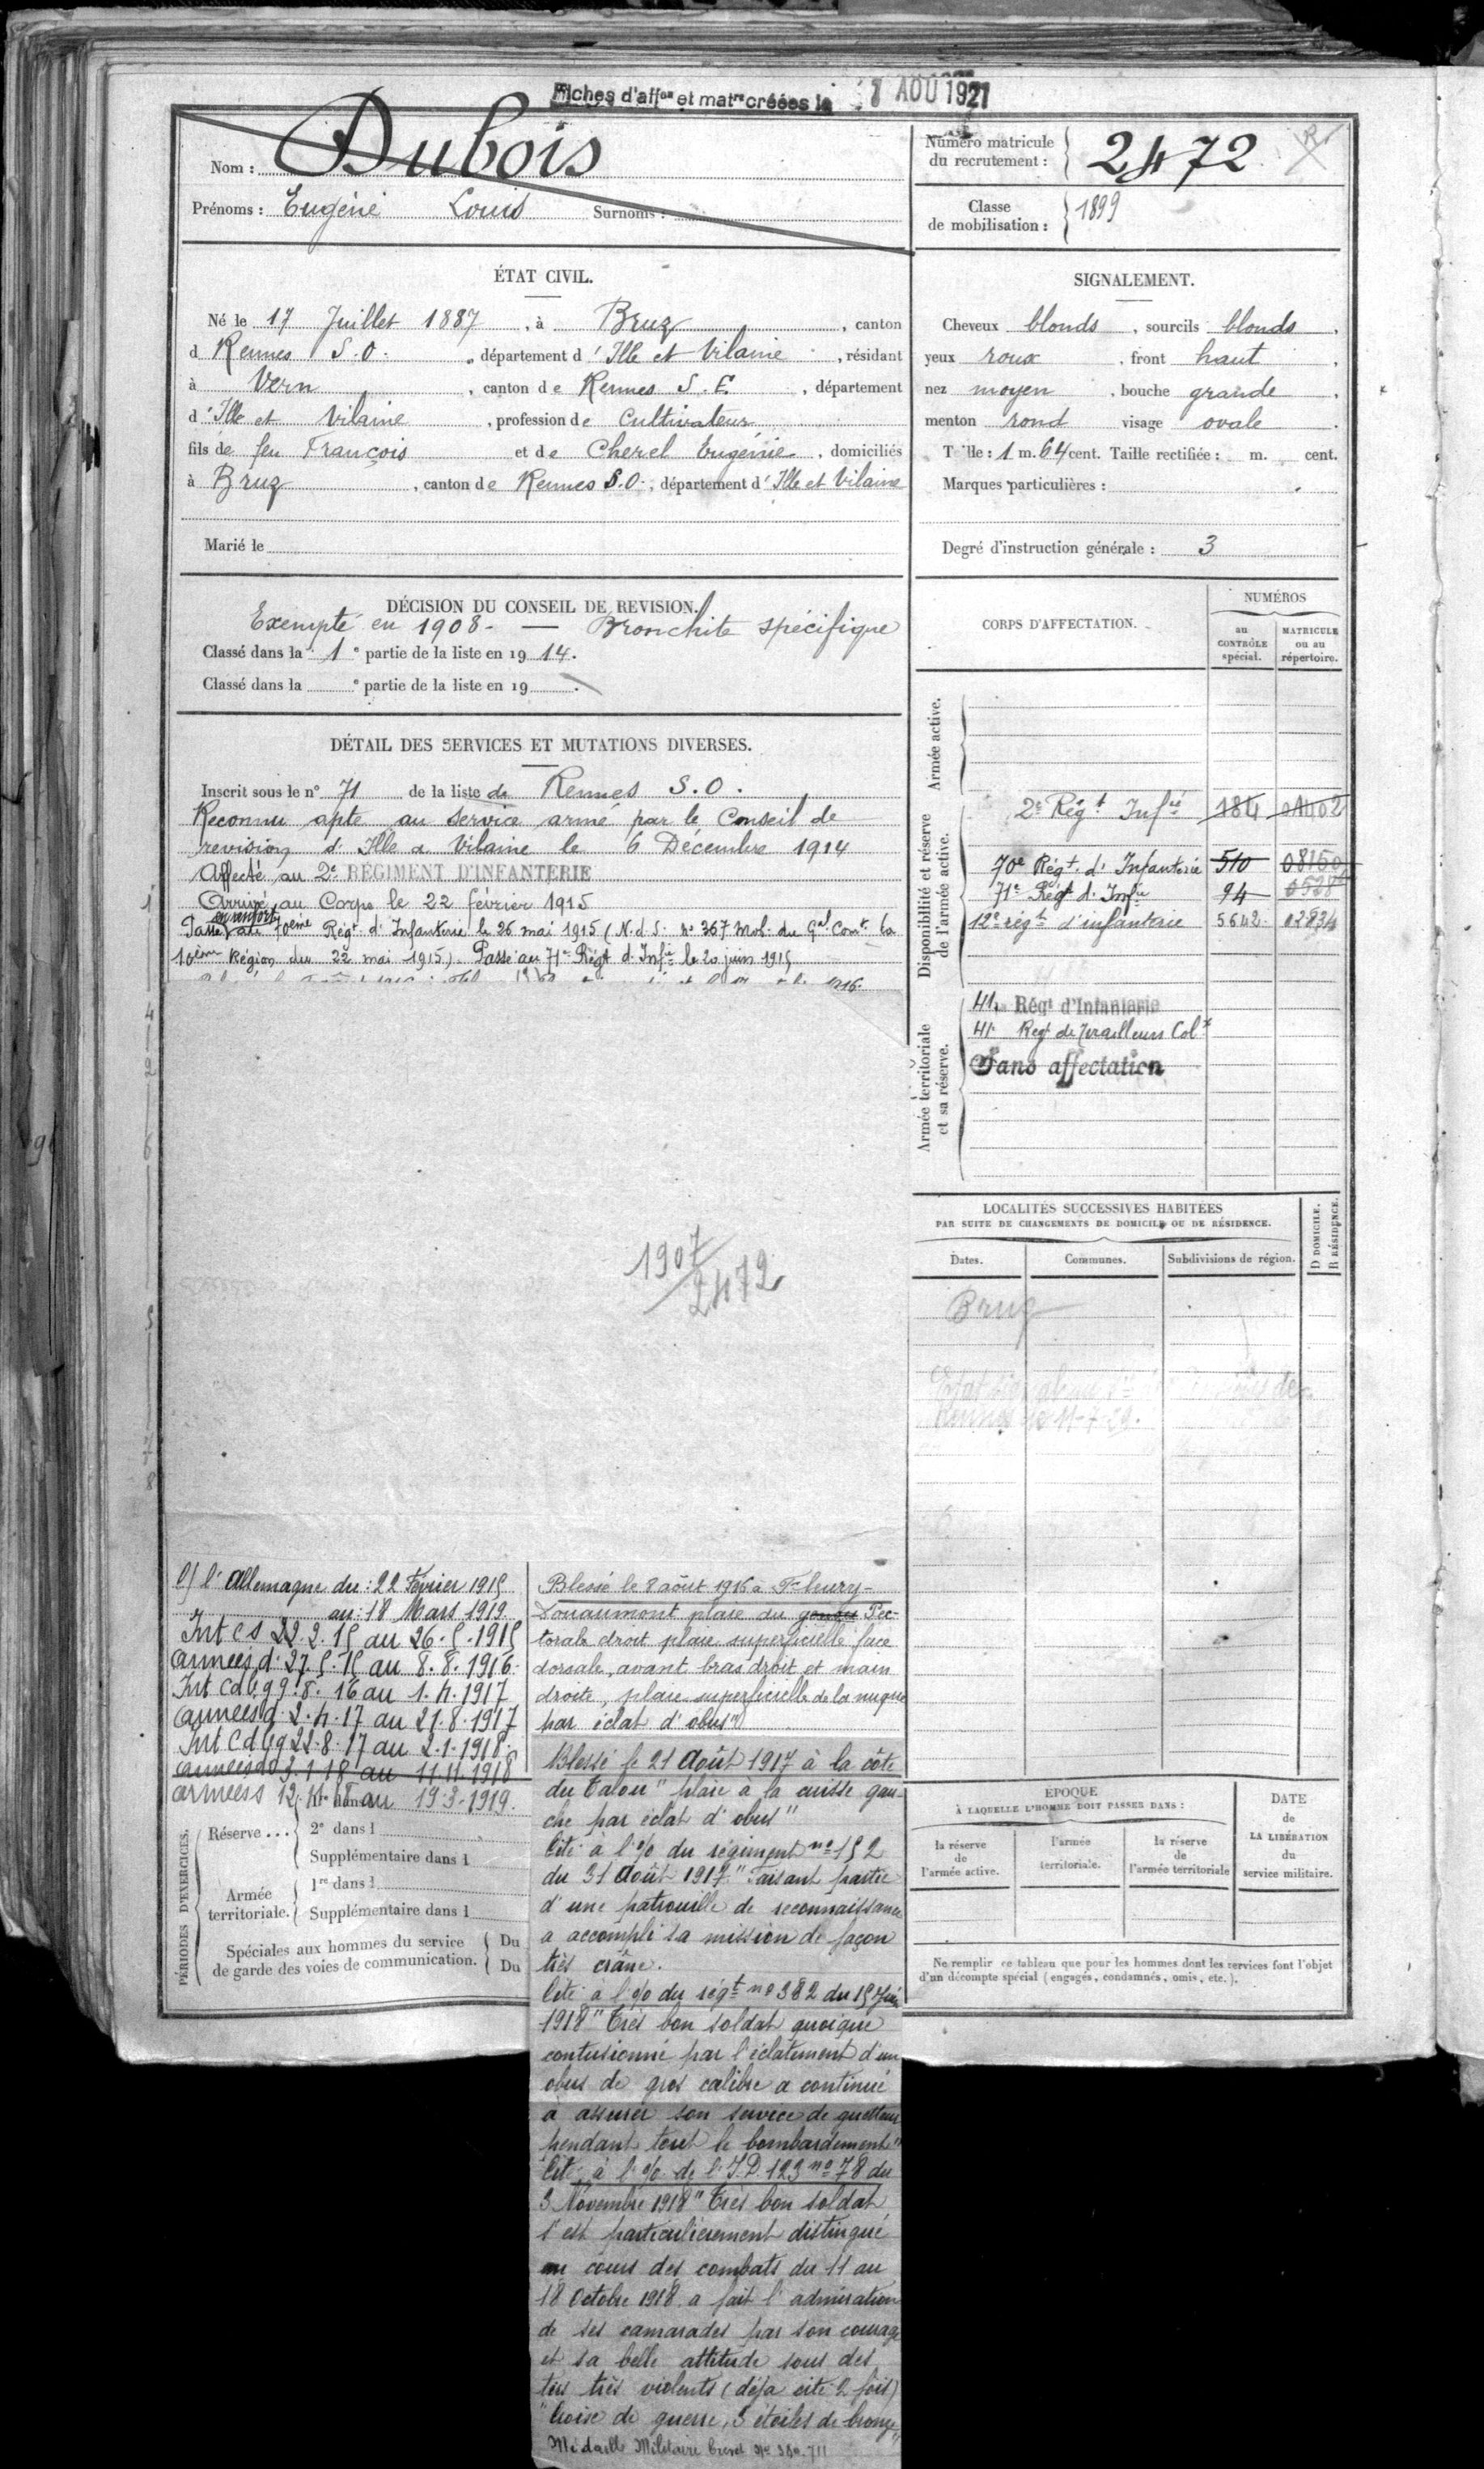 Fiches d'affon et matre créées le 8 AOU 1921
Nom : Dubois
Prénoms : Eugène Louis Surnoms :
Numéro matricule du recrutement : 2472
Classe de mobilisation : 1899
ÉTAT CIVIL.
Né le 17 Juillet 1887, à Bruz, canton
d Rennes S.O., département d'Ille et Vilaine, résidant
à Vern, canton de Rennes S.E., département
d'Ille et Vilaine, profession de Cultivateur
fils de feu François et de Cherel Eugénie, domiciliés
à Bruz, canton de Rennes S.O., département d'Ille et Vilaine
Marié le
SIGNALEMENT.
Cheveux blonds, sourcils blonds,
yeux roux, front haut,
nez moyen, bouche grande,
menton rond visage ovale.
Taille : 1 m. 64 cent. Taille rectifiée : m. cent.
Marques particulières :
Degré d'instruction générale : 3
DÉCISION DU CONSEIL DE REVISION.
Exempté en 1908 - Bronchite spécifique
Classé dans la 1e partie de la liste en 1914.
Classé dans la e partie de la liste en 19 .
DÉTAIL DES SERVICES ET MUTATIONS DIVERSES.
Inscrit sous le n° 71 de la liste de Rennes S.O.
Reconnu apte au service armé par le Conseil de
revision d'Ille a Vilaine le 6 Décembre 1914
Affecté au 2e RÉGIMENT D'INFANTERIE
Arrivé au Corps le 22 février 1915
Passé en renfort au 70ème Régt d'Infanterie le 26 mai 1915 (N.d.S. n° 367 Mob. du Gal Comt la
10ème Région du 22 mai 1915). Passé au 71e Régt d'Infie le 20 juin 1915
1916.
1907
2472
CORPS D'AFFECTATION.
NUMÉROS
au CONTRÔLE spécial.
MATRICULE ou au répertoire.
Armée active.
Disponibilité et réserve de l'armée active.
2e Régt Infie 184
70e Régt d'Infanterie 510 08150
71e Régt d'Infie 94
12e régt d'infanterie 5642 02834
Armée territoriale et sa réserve.
41e Régt d'Infanterie
41e Regt de Tirailleurs Colx
Sans affectation
LOCALITÉS SUCCESSIVES HABITÉES
PAR SUITE DE CHANGEMENTS DE DOMICILE OU DE RÉSIDENCE.
Dates. Communes. Subdivisions de région.
D DOMICILE. R RÉSIDENCE.
Bruz
11-7-29.
c/ l'Allemagne du : 22 Février 1915
au : 18 Mars 1919
Int CS 22.2.15 au 26.5.1915
armées d. 27.5.15 au 8.8.1916
Int Cdbg 9.8.16 au 1.4.1917
armées d. 2.4.17 au 21.8.1917
Int Cdbg 22.8.17 au 2.1.1918
armées d 3.1.18 au 11.11.1918
armées 12. au 19.3.1919.
PÉRIODES D'EXERCICES.
Réserve ... 2e dans l
Supplémentaire dans l
Armée territoriale. 1re dans l
Supplémentaire dans l
Spéciales aux hommes du service de garde des voies de communication. Du
Du
Blessé le 8 août 1916 à Fleury-
Douaumont plaie du genou Pec-
torale droit plaie superficielle face
dorsale, avant bras droit et main
droite, plaie superficielle de la nuque
par éclat d'obus"
Blessé le 21 Août 1917 à la côte
du Talou "plaie à la cuisse gau-
che par éclat d'obus"
Cité à l'% du régiment n° 152
du 31 Août 1917. "Faisant partie
d'une patrouille de reconnaissance
a accompli sa mission de façon
très crâne.
Cité à l'% du régt n° 382 du 15 Juin
1918 "Très bon soldat quoique
contusionné par l'éclatement d'un
obus de gros calibre a continué
à assurer son service de guetteur
pendant tout le bombardement"
Cité à l'% de l'I.D. 123 n° 78 du
3 Novembre 1918 "Très bon soldat
s'est particulièrement distingué
au cours des combats du 11 au
18 Octobre 1918 a fait l'admiration
de ses camarades par son courage
et sa belle attitude sous des
tirs très violents (déjà cité 2 fois)
"Croix de guerre, 3 étoiles de bronze"
Médaille Militaire brevet No 380.711
ÉPOQUE
À LAQUELLE L'HOMME DOIT PASSER DANS :
la réserve de l'armée active.
l'armée territoriale.
la réserve de l'armée territoriale
DATE de LA LIBÉRATION du service militaire.
Ne remplir ce tableau que pour les hommes dont les services font l'objet
d'un décompte spécial (engagés, condamnés, omis, etc.).